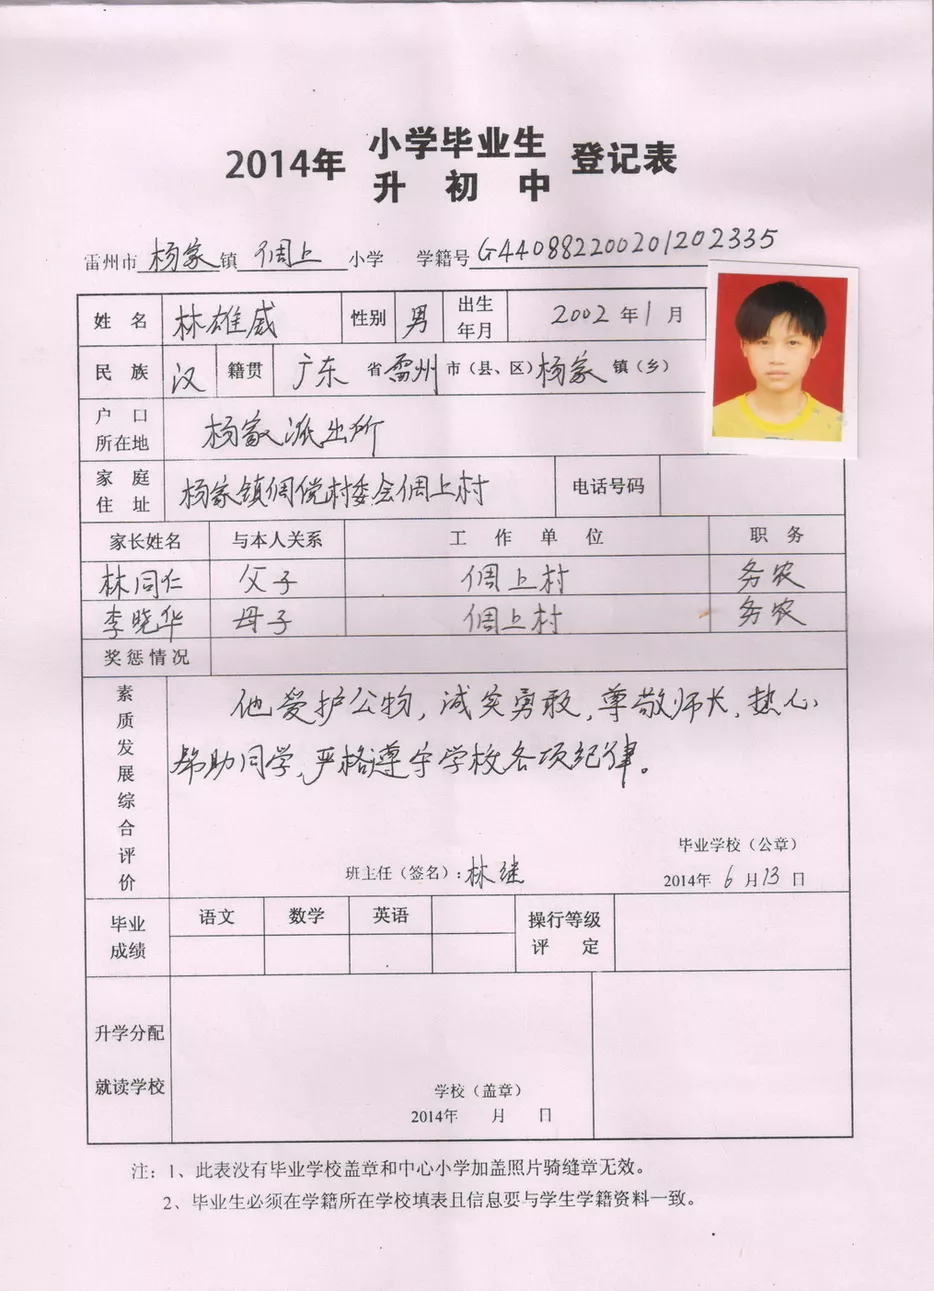 2014年 小学毕业生 登记表
升初中
雷州市杨家镇倜上小学 学籍号G44088220020120 2335
姓名 林雄威 性别 男 出生年月 2002年1月
民族 汉 籍贯 广东省雷州市(县、区)杨家镇(乡)
户口所在地 杨家派出所
家庭住址 杨家镇倜傥村委会倜上村 电话号码
家长姓名 与本人关系 工作单位 职务
林同仁 父子 倜上村 务农
李晓华 母子 倜上村 务农
奖惩情况
素质发展综合评价
他爱护公物,诚实勇敢,尊敬师长,热心
帮助同学,严格遵守学校各项纪律。
毕业学校(公章)
班主任(签名):林继 2014年6月13日
毕业成绩 语文 数学 英语 操行等级评定
升学分配
就读学校
学校(盖章)
2014年 月 日
注:1、此表没有毕业学校盖章和中心小学加盖照片骑缝章无效。
2、毕业生必须在学籍所在学校填表且信息要与学生学籍资料一致。